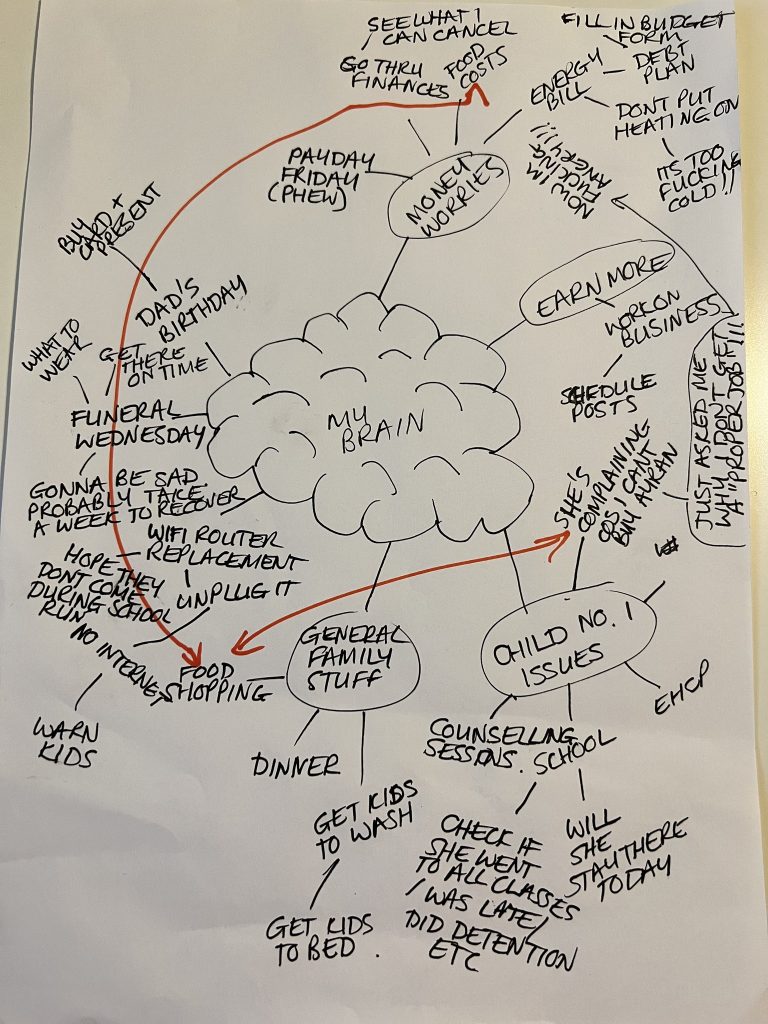 SEE WHAT I
CAN CANCEL
GO THRU
FINANCES
FOOD
COSTS
FILL IN BUDGET
FORM
DEBT
PLAN
ENERGY
BILL
DONT PUT
HEATING ON
ITS TOO
FUCKING
COLD!!
PAYDAY
FRIDAY
(PHEW)
MONEY
WORRIES
NOW IM
FUCKING
ANGRY!!!
BUY
CARD +
PRESENT
DAD'S
BIRTHDAY
EARN MORE
WORK ON
BUSINESS
SCHEDULE
POSTS
WHAT TO
WEAR
GET
THERE
ON TIME
FUNERAL
WEDNESDAY
GONNA BE SAD
PROBABLY TAKE
A WEEK TO RECOVER
MY
BRAIN
JUST ASKED ME
WHY I DON'T GET
A "PROPER JOB"!!!
SHE'S
COMPLAINING
COS I CAN'T
BUY AYRAN
WIFI ROUTER
REPLACEMENT
HOPE THEY
DONT COME
DURING SCHOOL
RUN
UNPLUG IT
NO INTERNET
WARN
KIDS
FOOD
SHOPPING
GENERAL
FAMILY
STUFF
DINNER
GET KIDS
TO WASH
GET KIDS
TO BED.
CHILD NO. 1
ISSUES
EHCP
COUNSELLING
SESSIONS.
SCHOOL
CHECK IF
SHE WENT
TO ALL CLASSES
/ WAS LATE /
DID DETENTION
ETC
WILL
SHE
STAY THERE
TODAY